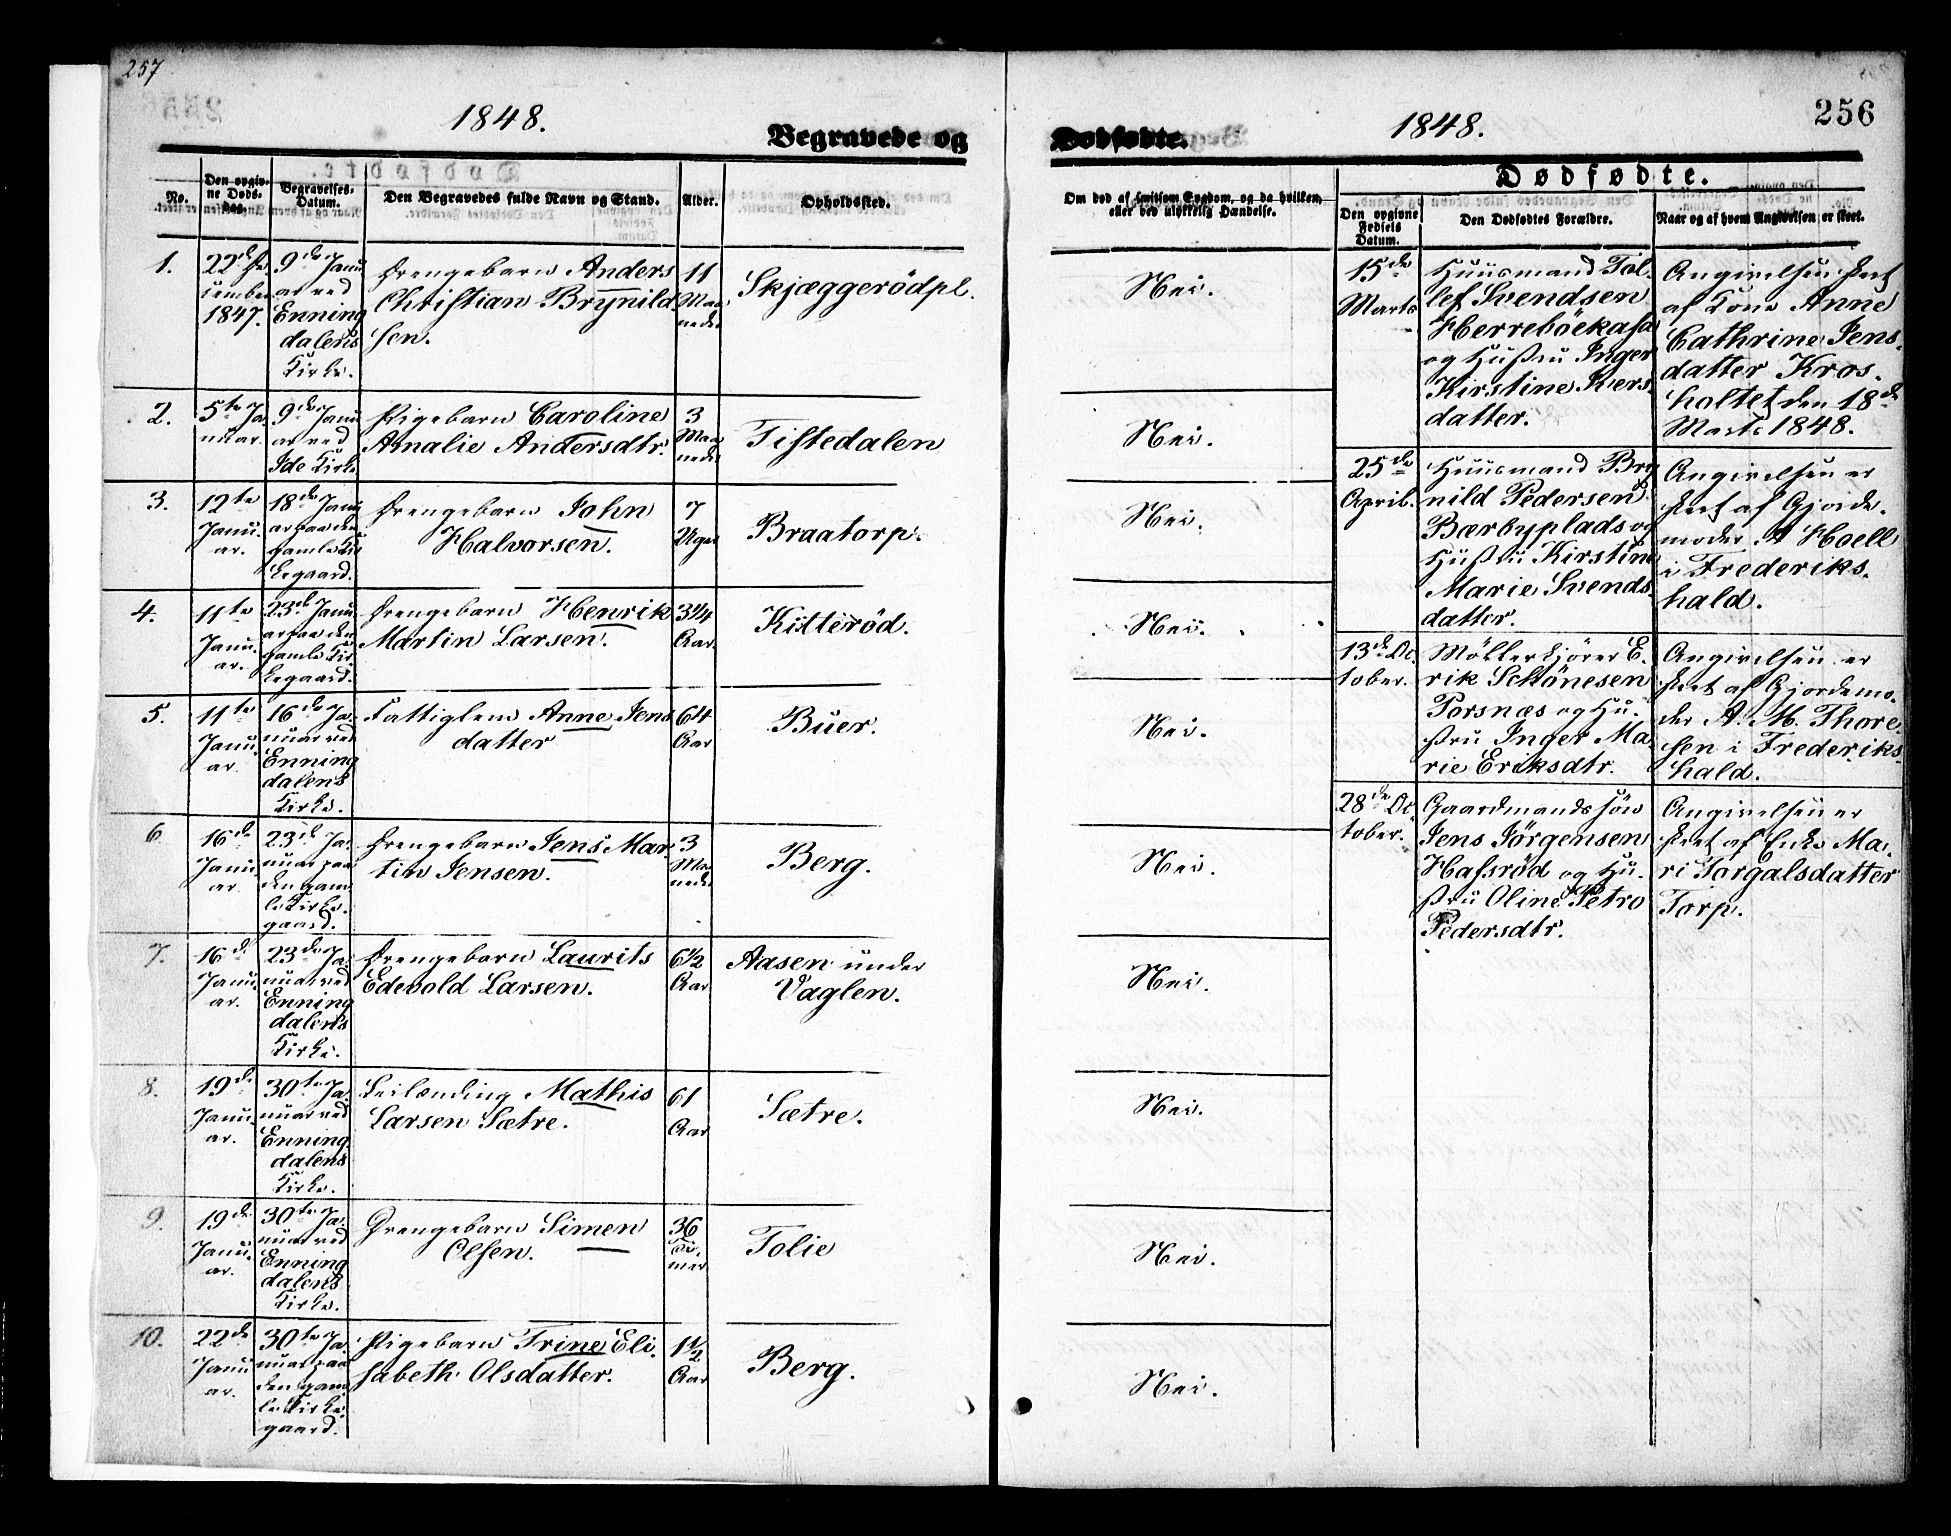 257
1848.
Begravede og
No.
Den opgiv-
ne Døds-
dag.
Begravelses-
Datum.
Den Begravedes fulde Navn og Stand.
Alder.
Opholdssted.
1.
22de De
cember
1847.
9de Janu
ar ved
Enning
dalens
Kirke.
Drengebarn Anders
Christian Brynild
sen.
11
Maa
neder
Skjæggerödpl.
2.
5te Ja
nuar.
9de Janu
ar ved
Ide Kirke
Pigebarn Caroline
Amalie Andersdtr.
3
Maa
neder
Tistedalen
3.
12te
Janu.
ar.
18de Janu
ar paa den
gamle Kir
kegaard.
Drengebarn John
Halvorsen.
7
Uger
Braatorp.
4.
11te
Janu.
ar.
23de Janu
ar paa den
gamle Kir
kegaard.
Drengebarn Henrik
Martin Larsen.
3 1/4
Aar.
Kitteröd.
5.
11te
Janu.
ar.
16de Ja.
nuar ved
Enning
dalens
Kirke.
Fattiglem Anne Jens
datter
64
Aar
Buer.
6
16de
Janu.
ar.
23de Ja.
nuar paa
den gam
le Kirke.
gaard.
Drengebarn Jens Mar.
tin Jensen.
3
Maa
neder
Berg.
7.
16de
Janu.
ar.
23de Ja
nuar ved
Enning
dalens
Kirke.
Drengebarn Laurits
Edevold Larsen.
6 1/2
Aar
Aasen under
Vaglen.
8.
19de
Janu.
ar.
30te Ja.
nuar ved
Enning
dalens
Kirke.
Leilænding Mathis
Larsen Sætre.
61
Aar
Sætre.
9.
19de
Janu.
ar.
30te Ja.
nuar ved
Enning
dalens
Kirke.
Drengebarn Simen
Olsen.
36
Ti.
mer
Tolie
10.
22de
Janu
ar.
30te Ja
nuar paa
den gam
le Kirke
gaard.
Pigebarn Trine Eli.
sabeth Olsdatter.
1 1/2
Aar
Berg.
256
1848.
Dødfødte.
Om død af smitsom Sygdom, og da hvilken,
eller ved ulykkelig Hændelse.
Dødfødte.
Den opgivne
Fødsels
Datum.
Den Dødfødtes Forældre.
Naar og af hvem Angivelsen er skeet.
Nei.
Nei.
Nei.
Nei.
Nei.
Nei.
Nei.
Nei.
Nei.
Nei.
15de
Marts
Huusmand Tol-
lef Svendsen
Herreböekasa
og Hustru Inger
Kirstine Ivers
datter.
Angivelsen skeet
af Kone Anne
Cathrine Jens.
datter Kros.
holtet den 18de
Marts 1848.
25de
April.
Huusmand Bry
nild Pedersen
Bærbyplads og
Hustru Kirstine
Marie Svends.
datter.
Angivelsen er
skeet af Gjorde.
moder A Hoell
i Frederiks.
hald.
13de Oc.
tober.
Møllerkjører E.
rik Schönesen
Porsnæs og Hu.
stru Inger Ma.
rie Eriksdtr.
Angivelsen er
skeet af Gjordemo.
der A. M. Thore.
sen i Frederiks
hald.
28de Oc.
tober.
Gaardmandssön
Jens Jørgensen
Hafsröd og Hu.
stru Oline Petro
Pedersdtr.
Angivelsen er
skeet af Enke Ma.
ri Torgalsdatter
Torp.